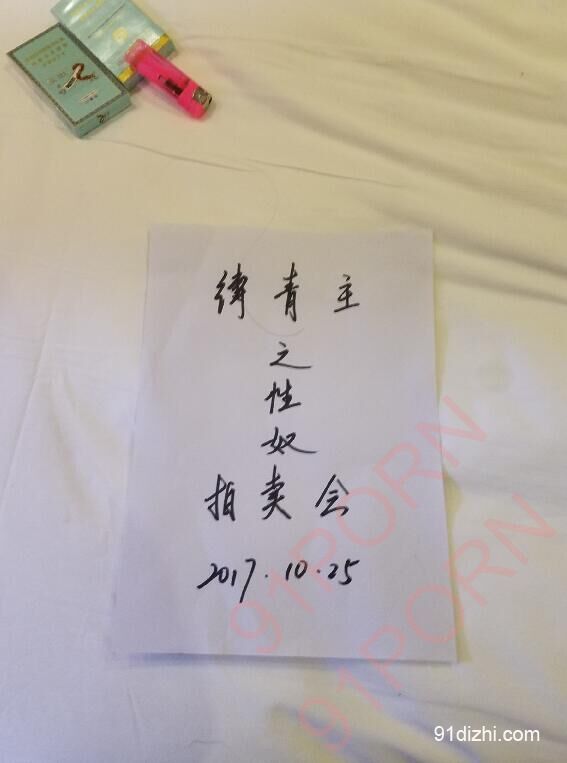 绮青主
之
性
奴
拍卖会
2017.10.25
91PORN
91PORN
91dizhi.com